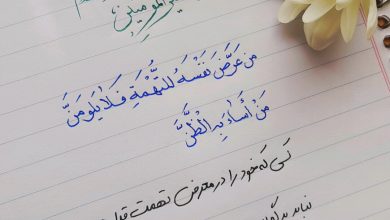 امیرالمومنین
مَن عَرَّضَ نَفْسَهُ لِلتُّهْمَةِ فَلَا یَلُومَنَّ
مَنْ أَسَاءَ بِهِ الْظَّنَّ
کسی که خود را در معرض تهمت قرار
نباید بدگو